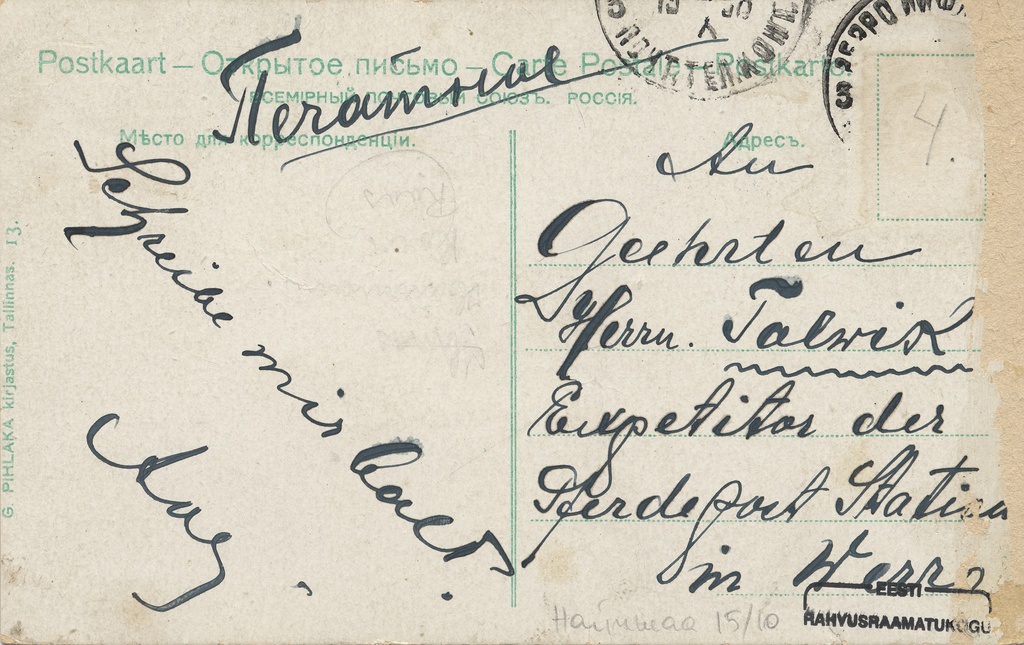 Postkaart — Открытое письмо — Carte Postale — Postkarte
ВСЕМІРНЫЙ ПОЧТОВЫЙ СОЮЗЪ. РОССІЯ.
Печатное
Мѣсто для корреспонденціи.
Адресъ.
4
Schreibe mir bald.
An
Geehrten
Herrn. Talwik
Expetitor der
Pferdepost Station
in Werro
G. PIHLAKA kirjastus, Tallinnas. 13.
15/10
EESTI
RAHVUSRAAMATUKOGU